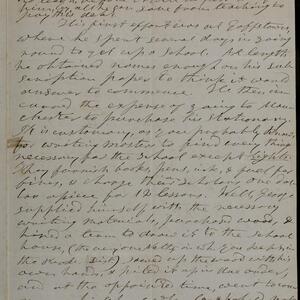 pay this deal.
His first effort was at Goffstown,
where he spent several days in going
round to get up a school. At length
he obtained names enough on his sub
scription paper to think it would
answer to commence. He then in
curred the expense of going to Man
chester to purchase his stationary.
It is customary, as you probably know,
for writing masters to find every thing
necessary for the school except lights.
They furnish books, pens, ink, & fuel for
fires, & charge their scholars one dol
lar apiece for 12 lessons. Well, George
supplied himself with the necessary
writing materials, purchased wood, &
hired a team to draw it to the school
house, (the very one Sally in wh. you kept in
the Dist.) sawed up the wood with his
own hands, & piled it up in due order,
and at the appointed time, went to